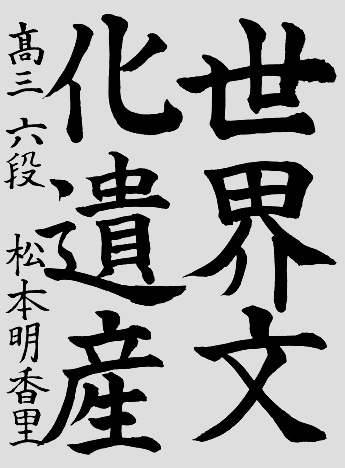 世界文
化遺産
髙三 六段 松本明香里